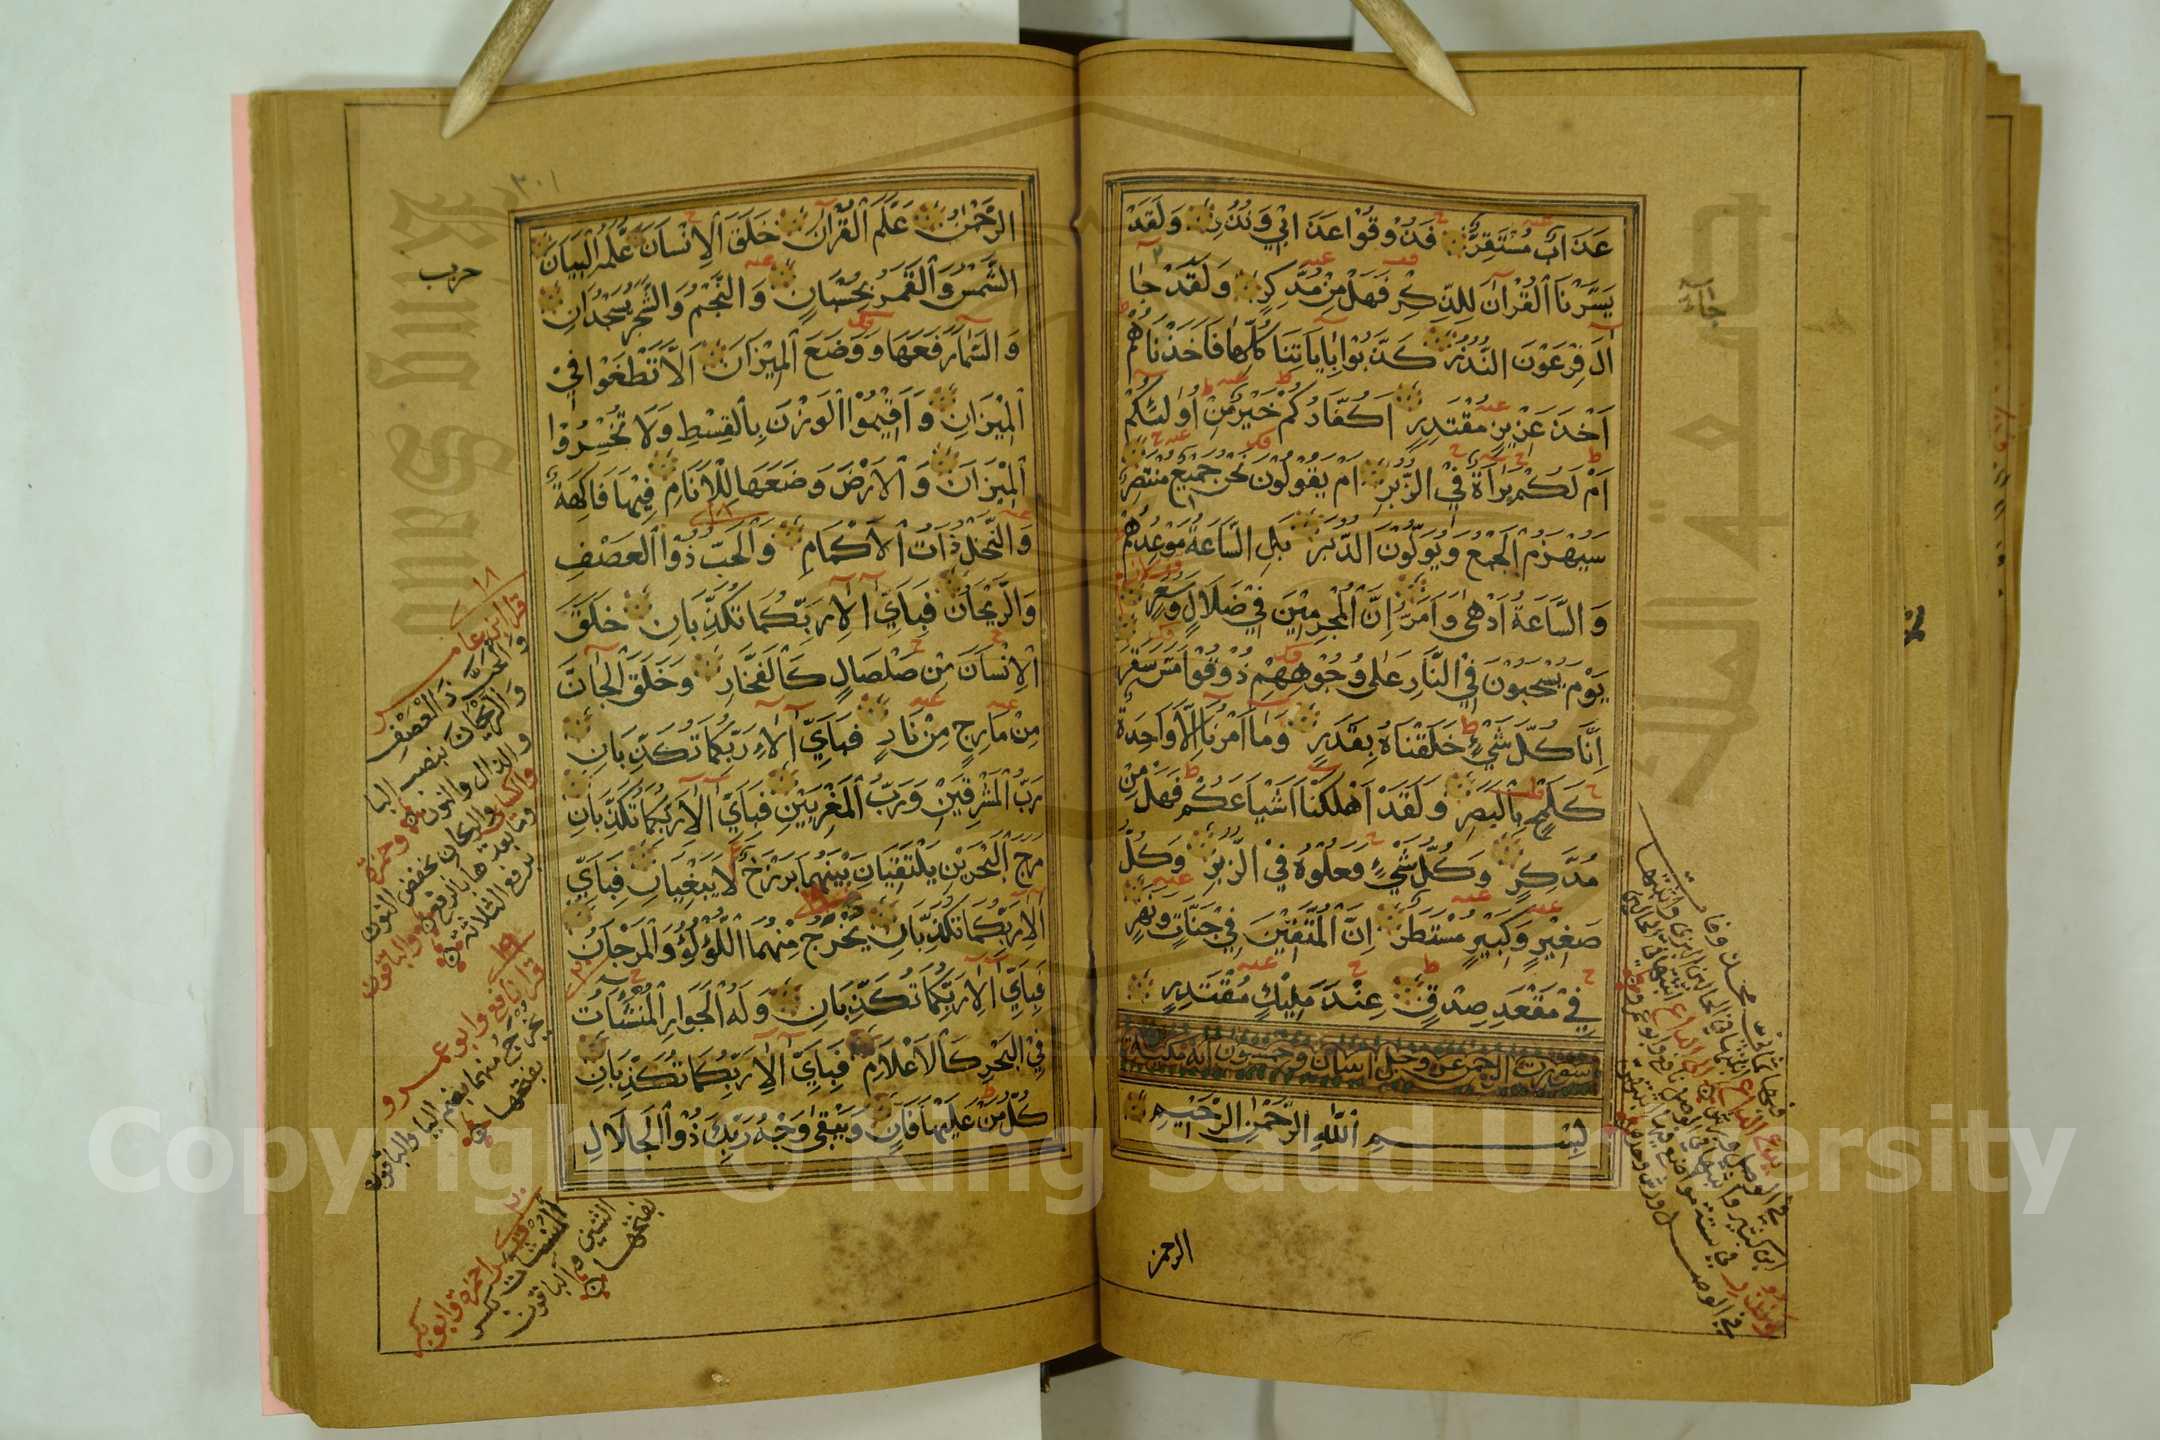 عَذَابٌ مُسْتَقِرٌّ فَذُوقُوا عَذَابِي وَنُذُرِ وَلَقَدْ
يَسَّرْنَا الْقُرْآنَ لِلذِّكْرِ فَهَلْ مِنْ مُدَّكِرٍ وَلَقَدْ جَا
آلَ فِرْعَوْنَ النُّذُرُ كَذَّبُوا بِاٰيَاتِنَا كُلِّهَا فَاَخَذْنَاهُمْ
اَخْذَ عَزِيزٍ مُقْتَدِرٍ اَكُفَّارُكُمْ خَيْرٌ مِنْ اُولٰئِكُمْ
اَمْ لَكُمْ بَرَآءَةٌ فِي الزُّبُرِ اَمْ يَقُولُونَ نَحْنُ جَمِيعٌ مُنْتَصِرٌ
سَيُهْزَمُ الْجَمْعُ وَيُوَلُّونَ الدُّبُرَ بَلِ السَّاعَةُ مَوْعِدُهُمْ
وَالسَّاعَةُ اَدْهٰى وَاَمَرُّ اِنَّ الْمُجْرِمِينَ فِي ضَلَالٍ وَسُعُرٍ
يَوْمَ يُسْحَبُونَ فِي النَّارِ عَلٰى وُجُوهِهِمْ ذُوقُوا مَسَّ سَقَرَ
اِنَّا كُلَّ شَيْءٍ خَلَقْنَاهُ بِقَدَرٍ وَمَا اَمْرُنَا اِلَّا وَاحِدَةٌ
كَلَمْحٍ بِالْبَصَرِ وَلَقَدْ اَهْلَكْنَا اَشْيَاعَكُمْ فَهَلْ مِنْ
مُدَّكِرٍ وَكُلُّ شَيْءٍ فَعَلُوهُ فِي الزُّبُرِ وَكُلُّ
صَغِيرٍ وَكَبِيرٍ مُسْتَطَرٌ اِنَّ الْمُتَّقِينَ فِي جَنَّاتٍ وَنَهَرٍ
فِي مَقْعَدِ صِدْقٍ عِنْدَ مَلِيكٍ مُقْتَدِرٍ
سورت الرحمن عز وجل ثمان وخمسون آية مكية
بِسْمِ اللهِ الرَّحْمٰنِ الرَّحِيمِ
الرحمن
جاء
٣٠١
حزب
الرَّحْمٰنُ عَلَّمَ الْقُرْآنَ خَلَقَ الْاِنْسَانَ عَلَّمَهُ الْبَيَانَ
الشَّمْسُ وَالْقَمَرُ بِحُسْبَانٍ وَالنَّجْمُ وَالشَّجَرُ يَسْجُدَانِ
وَالسَّمَاءَ رَفَعَهَا وَوَضَعَ الْمِيْزَانَ اَلَّا تَطْغَوْا فِي
الْمِيْزَانِ وَاَقِيْمُوا الْوَزْنَ بِالْقِسْطِ وَلَا تُخْسِرُوا
الْمِيْزَانَ وَالْاَرْضَ وَضَعَهَا لِلْاَنَامِ فِيْهَا فَاكِهَةٌ
وَالنَّخْلُ ذَاتُ الْاَكْمَامِ وَالْحَبُّ ذُوا الْعَصْفِ
وَالرَّيْحَانُ فَبِاَيِّ اٰلَاءِ رَبِّكُمَا تُكَذِّبَانِ خَلَقَ
الْاِنْسَانَ مِنْ صَلْصَالٍ كَالْفَخَّارِ وَخَلَقَ الْجَانَّ
مِنْ مَارِجٍ مِنْ نَارٍ فَبِاَيِّ اٰلَاءِ رَبِّكُمَا تُكَذِّبَانِ
رَبُّ الْمَشْرِقَيْنِ وَرَبُّ الْمَغْرِبَيْنِ فَبِاَيِّ اٰلَاءِ رَبِّكُمَا تُكَذِّبَانِ
مَرَجَ الْبَحْرَيْنِ يَلْتَقِيَانِ بَيْنَهُمَا بَرْزَخٌ لَا يَبْغِيَانِ فَبِاَيِّ
اٰلَاءِ رَبِّكُمَا تُكَذِّبَانِ يَخْرُجُ مِنْهُمَا اللُّؤْلُؤُ وَالْمَرْجَانُ
فَبِاَيِّ اٰلَاءِ رَبِّكُمَا تُكَذِّبَانِ وَلَهُ الْجَوَارِ الْمُنْشَئَاتُ
فِي الْبَحْرِ كَالْاَعْلَامِ فَبِاَيِّ اٰلَاءِ رَبِّكُمَا تُكَذِّبَانِ
كُلُّ مَنْ عَلَيْهَا فَانٍ وَيَبْقٰى وَجْهُ رَبِّكَ ذُوا الْجَلَالِ
١٨
قرا ابن عامر
والحبَّ ذا العصف
والريحانَ بنصب البا
والذال والنون وحمزة
والكسائي والريحان بخفض النون
وما بعدها بالرفع والباقون
برفع الثلاثة
١٩
قرا نافع وابو عمرو
يُخرَج منهما بضم اليا والباقون
بفتحها
٢٠
حمزة وابو بكر
المنشئات بكسر
الشين والباقون
بفتحها
Copyright © King Saud University
King Saud
جامعة الملك